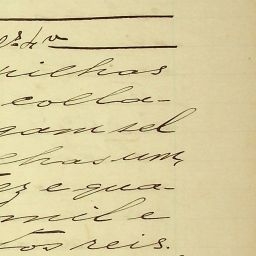 rilhas
colla-
gam sel
lhas um,
ez e qua-
mil e
tos reis.